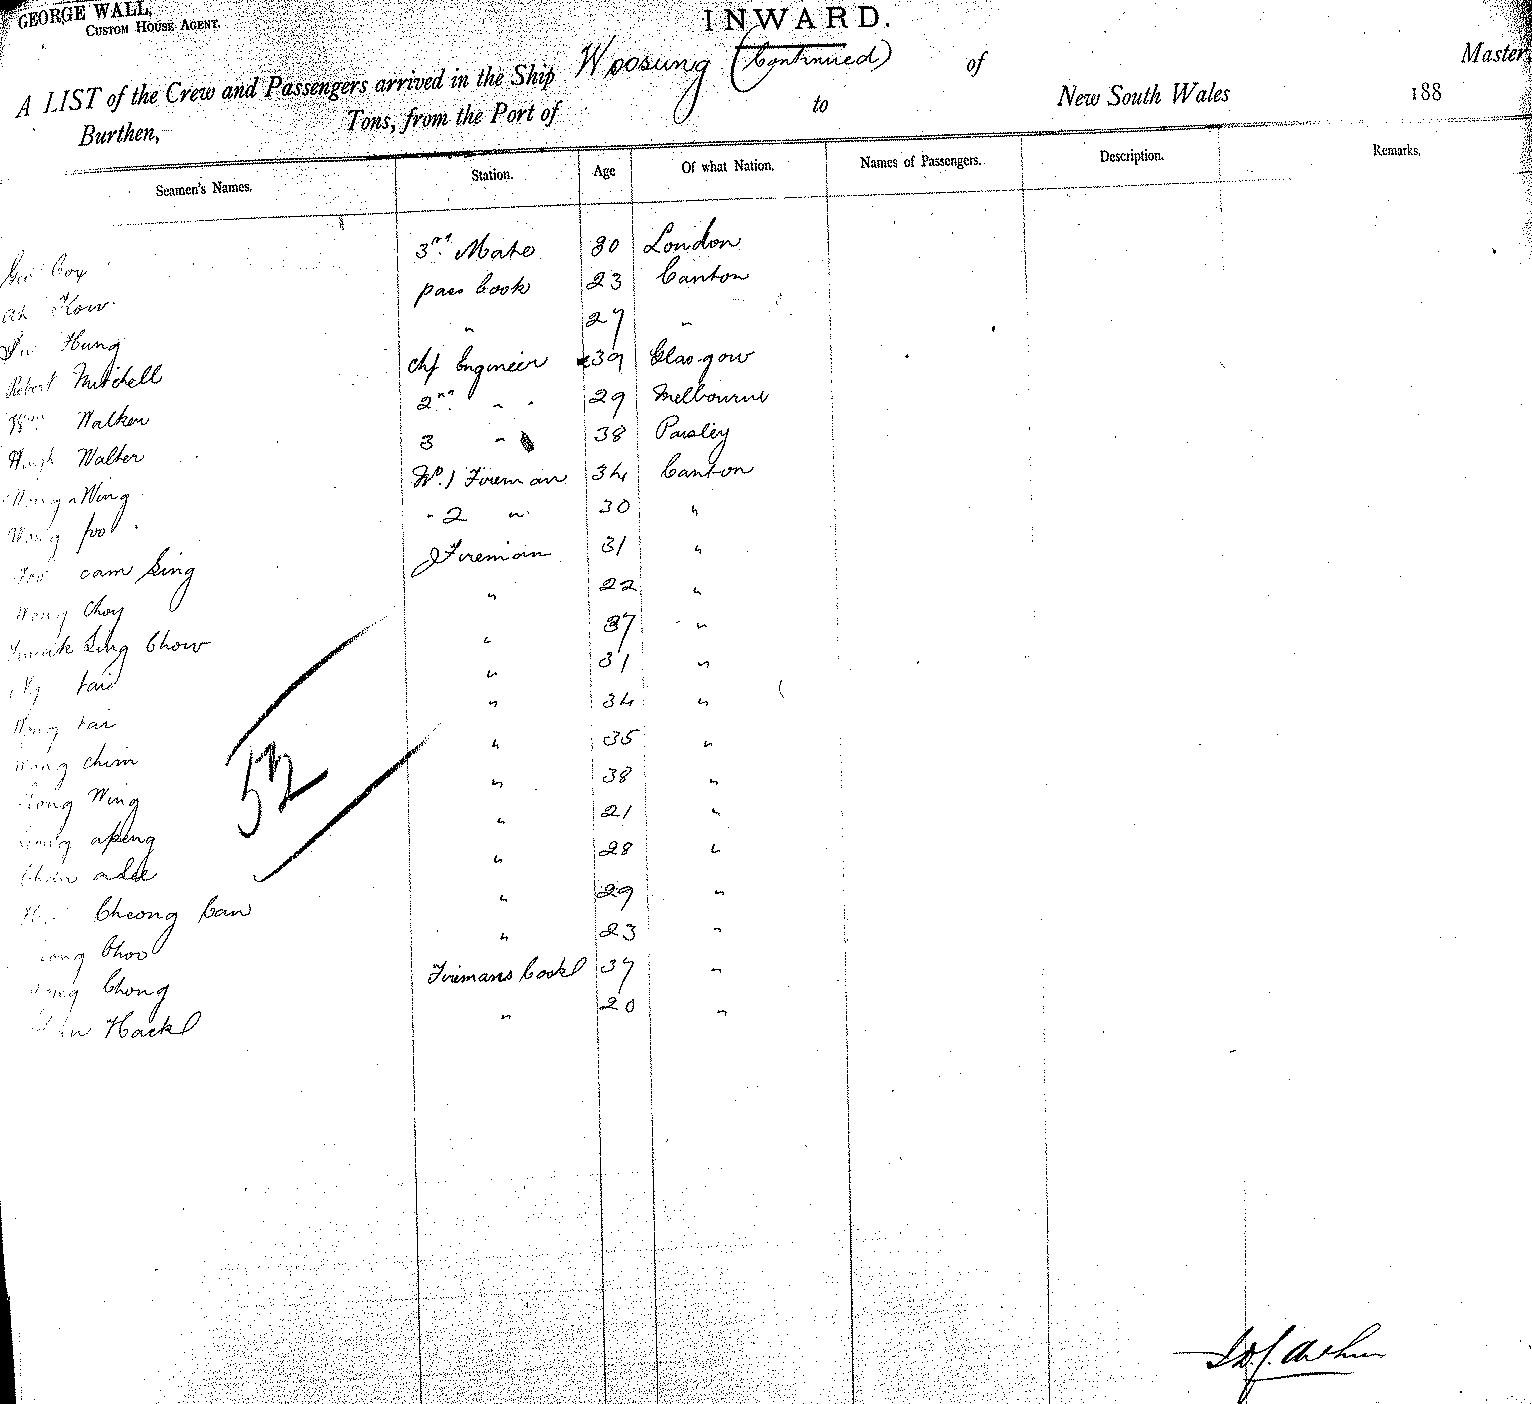 GEORGE WALL,
CUSTOM HOUSE AGENT.
INWARD.
A LIST of the Crew and Passengers arrived in the Ship Woosung (Continued) of Master,
Burthen, Tons, from the Port of to New South Wales 188
Seamen's Names. Station. Age Of what Nation. Names of Passengers. Description. Remarks.
Geo Cox 3rd Mate 30 London
Ah Kow pass Cook 23 Canton
Hung " 27 "
Robert Mitchell Chf Engineer 39 Glasgow
Wm Walker 2nd " " 29 Melbourne
Hugh Walter 3 " 38 Paisley
Wing No. 1 Fireman 34 Canton
Wong foo " 2 " 30 "
cam Sing Fireman 31 "
Wong Choy " 22 "
Sing Chow " 37 "
tai " 31 "
Wong tai " 34 "
Wong chim " 35 "
Wing " 38 "
apeng " 21 "
" 28 "
Cheong Can " 29 "
Choo " 23 "
Chong Firemans Cook 37 "
" 20 "
52